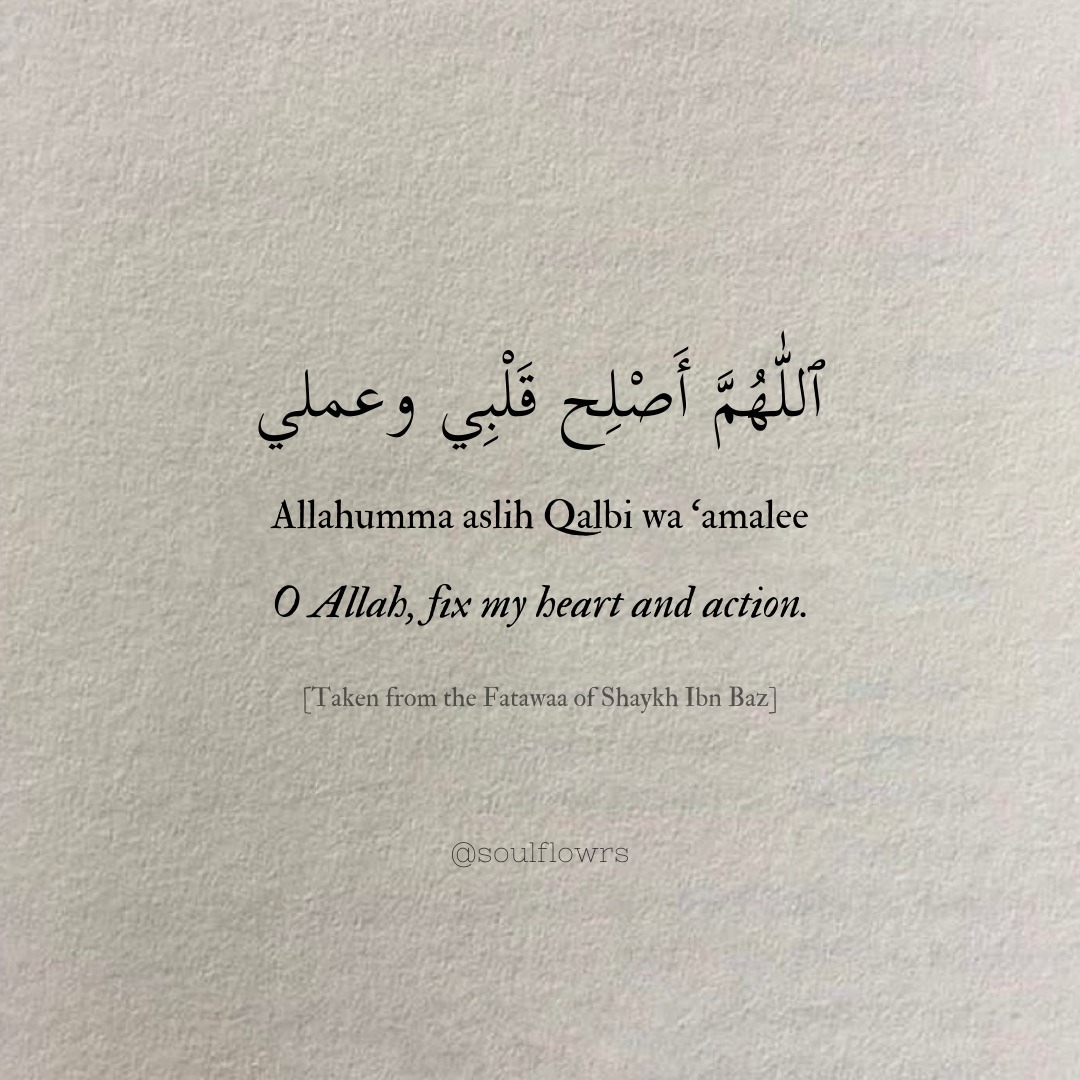 ٱللَّهُمَّ أَصْلِح قَلْبِي وعملي
Allahumma aslih Qalbi wa ‘amalee
O Allah, fix my heart and action.
[Taken from the Fatawaa of Shaykh Ibn Baz]
@soulflowrs